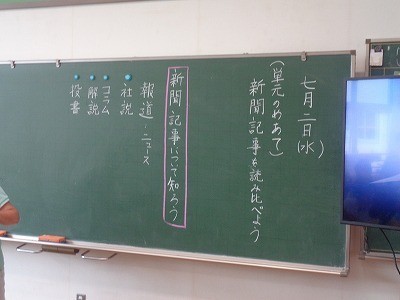 七月二日(水)
(単元のめあて)
新聞記事を読み比べよう
新聞記事について知ろう
報道・ニュース
社説
コラム
解説
投書